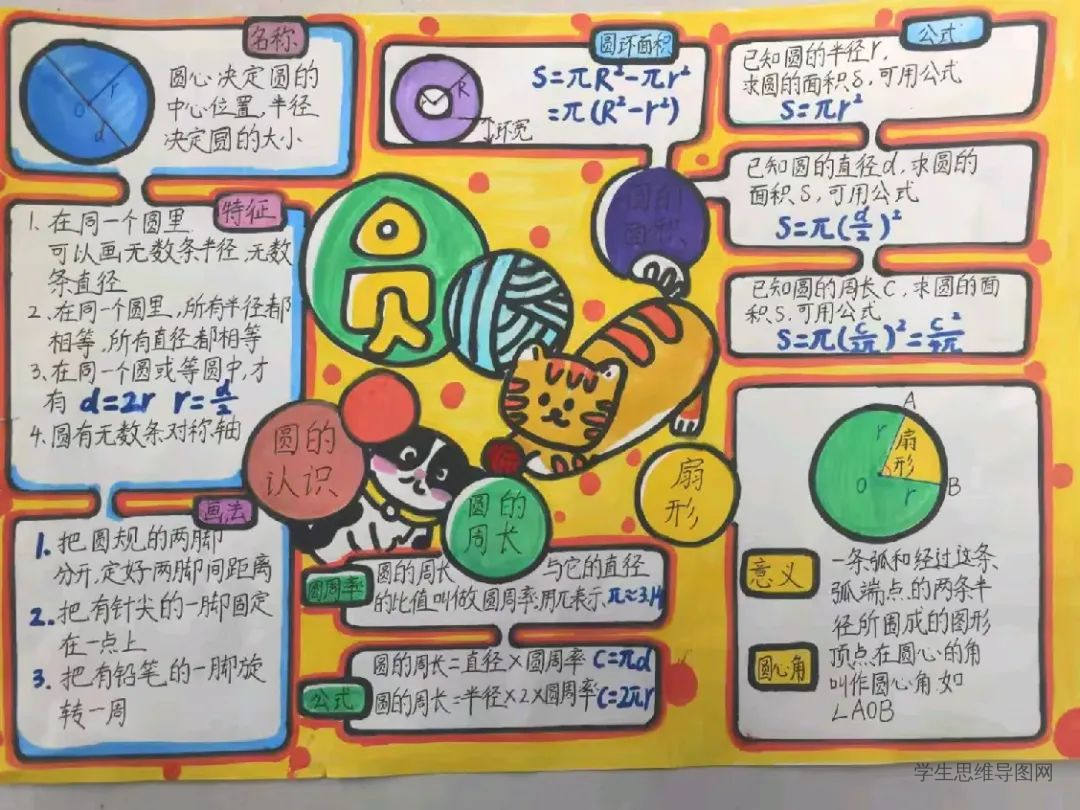 名称
圆心决定圆的
中心位置,半径
决定圆的大小
O
r
d
特征
1.在同一个圆里
可以画无数条半径,无数
条直径
2.在同一个圆里,所有半径都
相等,所有直径都相等
3.在同一个圆或等圆中,才
有 d=2r r=d/2
4.圆有无数条对称轴
画法
1.把圆规的两脚
分开,定好两脚间距离
2.把有针尖的一脚固定
在一点上
3.把有铅笔的一脚旋
转一周
圆环面积
R
环宽
S=πR²-πr²
=π(R²-r²)
圆的
面积
公式
已知圆的半径r,
求圆的面积S,可用公式
S=πr²
已知圆的直径d,求圆的
面积S,可用公式
S=π(d/2)²
已知圆的周长C,求圆的面
积S,可用公式
圆
圆的
认识
圆的
周长
扇
形
圆周率
圆的周长 与它的直径
的比值叫做圆周率,用π表示,π≈3.14
公式
圆的周长=直径×圆周率 C=πd
圆的周长=半径×2×圆周率 C=2πr
A
r
扇
形
O
r
B
意义
一条弧和经过这条
弧端点的两条半
径所围成的图形
圆心角
顶点在圆心的角
叫作圆心角.如
∠AOB
学生思维导图网